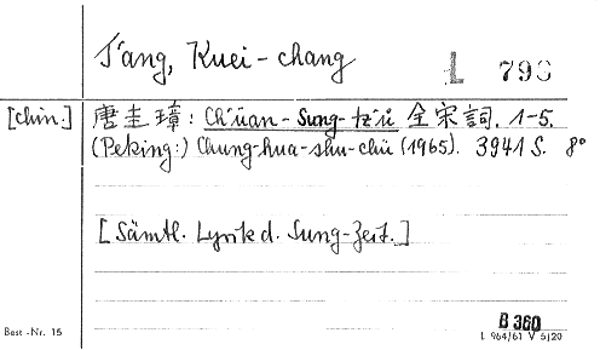 T'ang, Kuei-chang
L 798
[chin.] 唐圭璋: Ch'üan-Sung-tz'ü 全宋詞. 1-5.
(Peking:) Chung-hua-shu-chü (1965). 3941 S. 8°
[Sämtl. Lyrik d. Sung-Zeit.]
B 360
Best.-Nr. 15
L 964/61 V 5/20